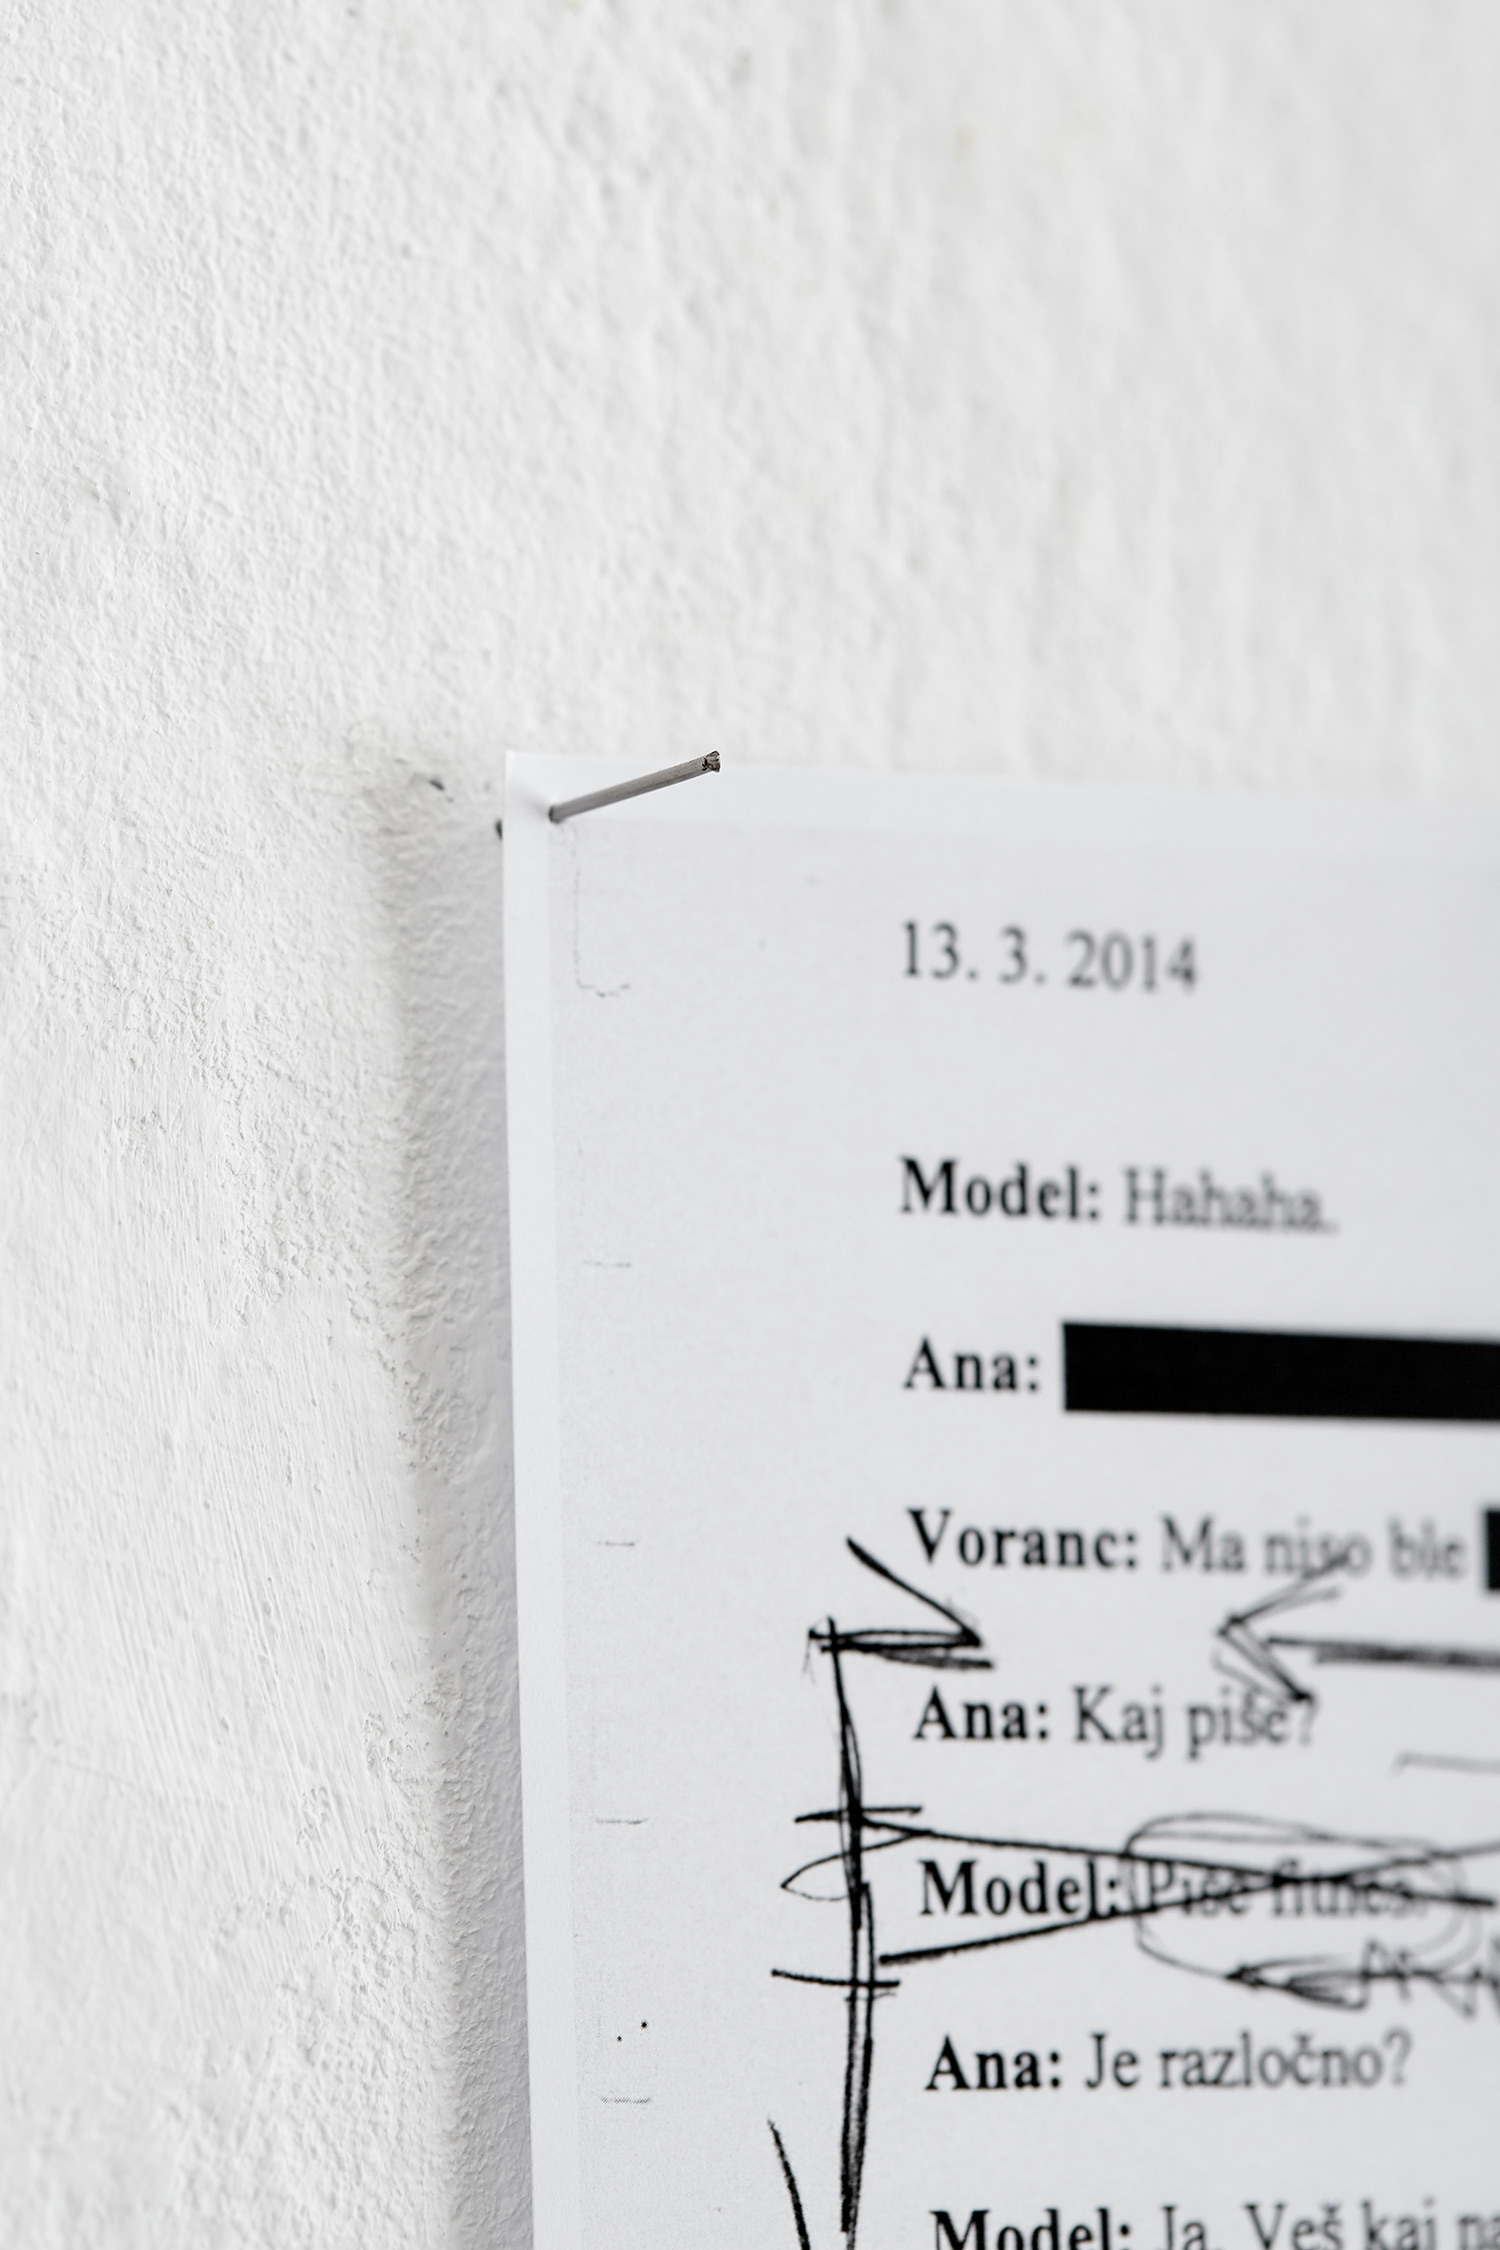 13. 3. 2014
Model: Hahaha.
Ana:
Voranc: Ma niso ble
Ana: Kaj piše?
Model: Piše fitnes.
Ana: Je razločno?
Model: Ja. Veš kaj na